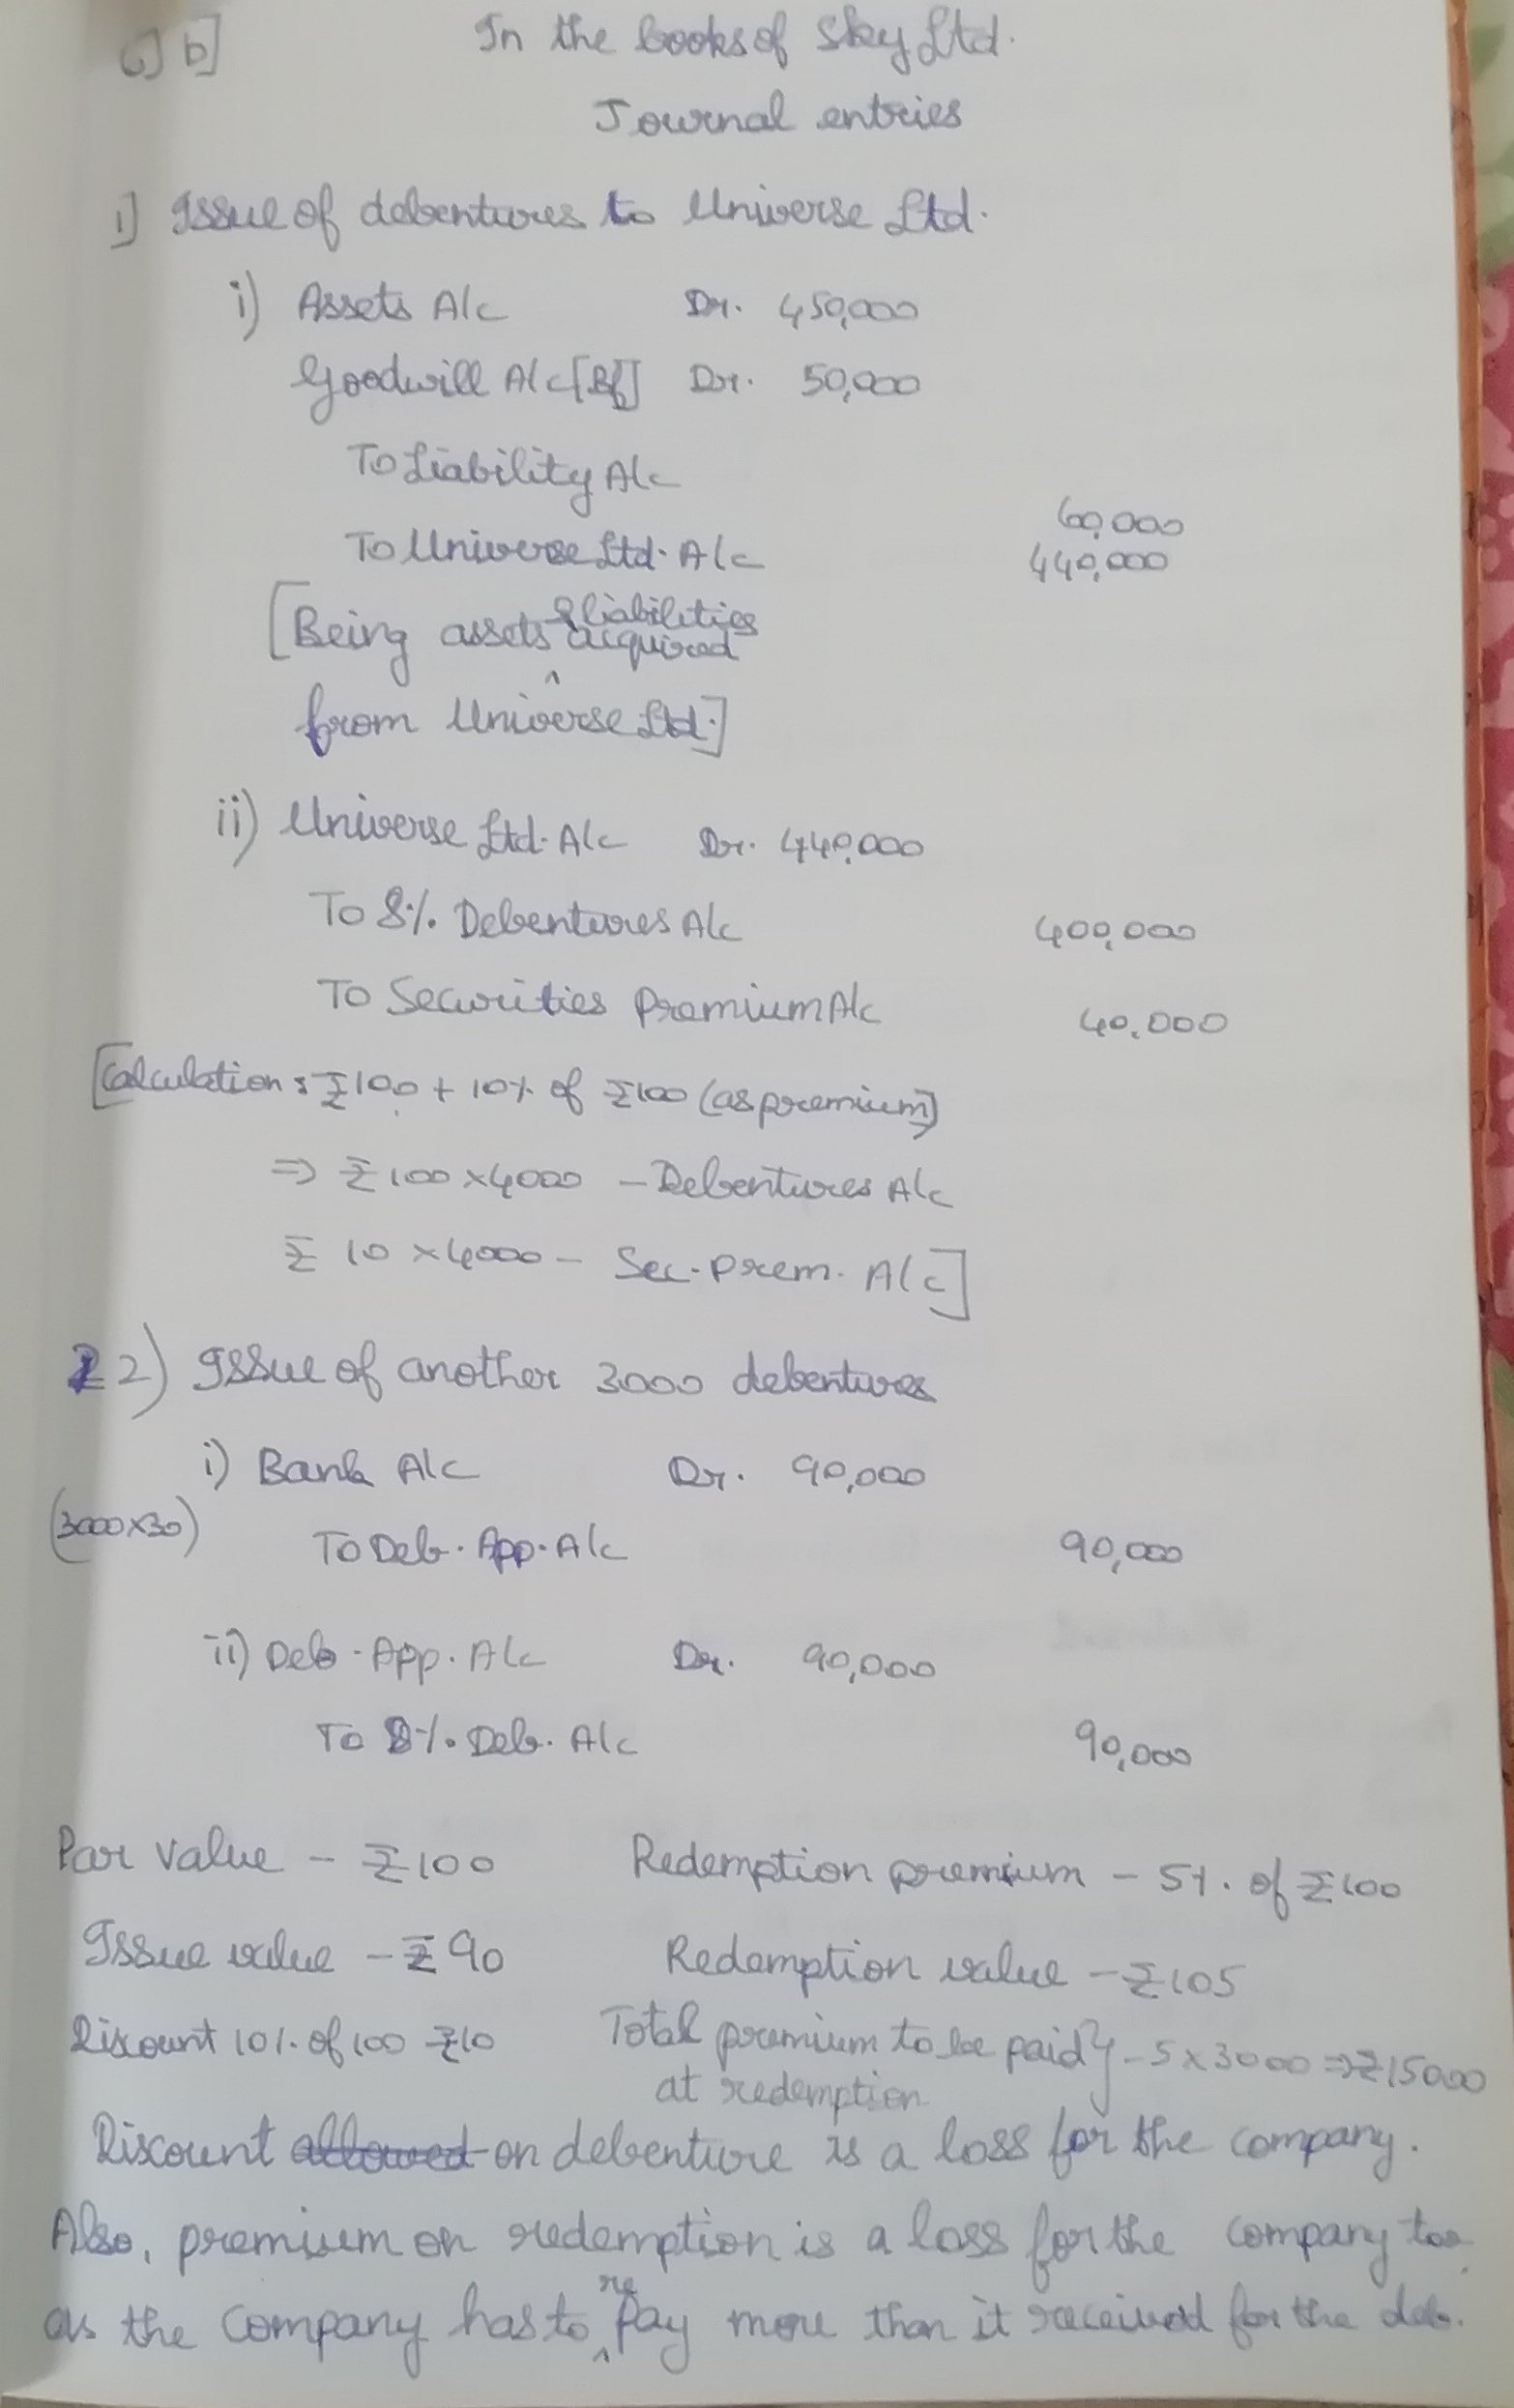 6] b] In the books of Sky Ltd.
Journal entries
1] Issue of debentures to Universe Ltd.
i) Assets A/c Dr. 450,000
Goodwill A/c [Bf] Dr. 50,000
To Liability A/c
60,000
To Universe Ltd. A/c 440,000
[Being assets & liabilities acquired
from Universe Ltd.]
ii) Universe Ltd. A/c Dr. 440,000
To 8% Debentures A/c 400,000
To Securities Premium A/c 40,000
[Calculation : ₹100 + 10% of ₹100 (as premium)
⇒ ₹100 x 4000 - Debentures A/c
₹ 10 x 4000 - Sec. Prem. A/c]
2) Issue of another 3000 debentures
i) Bank A/c Dr. 90,000
(3000x30) To Deb. App. A/c 90,000
ii) Deb. App. A/c Dr. 90,000
To 8% Deb. A/c 90,000
Par value - ₹100 Redemption premium - 5%. of ₹100
Issue value - ₹90 Redemption value - ₹105
Discount 10%. of 100 ₹10 Total premium to be paid} - 5 x 3000 ⇒ ₹15000
at redemption
Discount allowed on debenture is a loss for the company.
Also, premium on redemption is a loss for the company too
as the company has to repay more than it received for the deb.